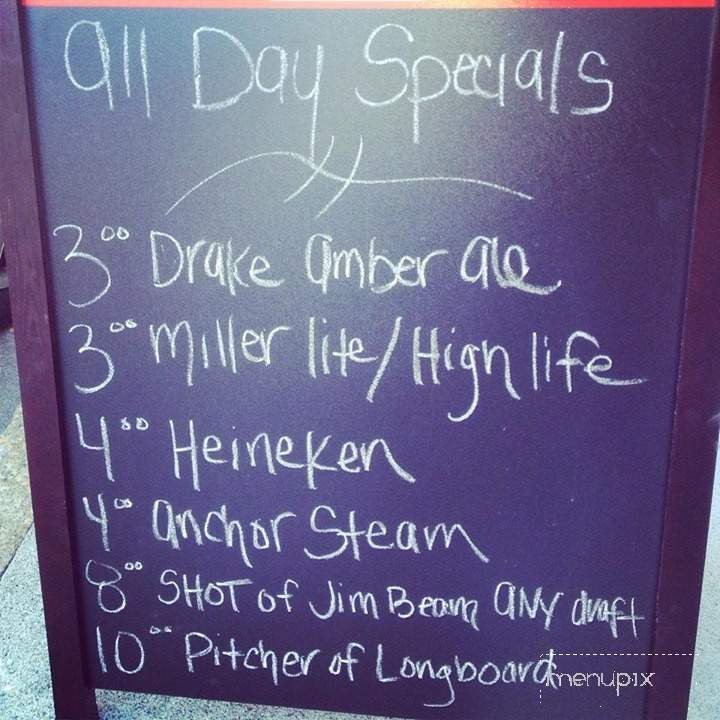 all Day Specials
3⁰⁰ Drake amber ale
3⁰⁰ Miller lite/High life
4⁰⁰ Heineken
4⁰⁰ anchor Steam
8⁰⁰ SHOT of Jim Beam ANY draft
10⁰⁰ Pitcher of Longboard
menupix